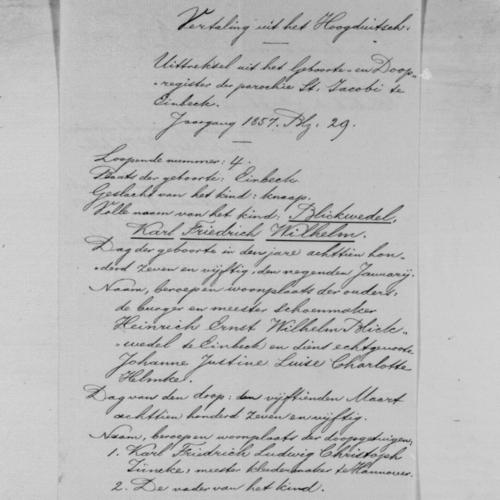 Vertaling uit het Hoogduitsch.
Uittreksel uit het Geboorte- en Doop-
-register der parochie St. Jacobi te
Einbeck.
Jaargang 1857. Blz. 29.
Loopende nummer: 4.
Plaats der geboorte: Einbeck
Geslacht van het kind: knaap.
Volle naam van het kind: Blickwedel,
Karl Friedrich Wilhelm.
Dag der geboorte in den jare achttien hon-
derd zeven en vijftig: den negenden Januarij.
Naam, beroep en woonplaats der ouders:
de burger en meester schoenmaker
Heinrich Ernst Wilhelm Blick-
-wedel te Einbeck en diens echtgenoote
Johanne Justine Luise Charlotte
Helmke.
Dag van den doop: den vijftienden Maart
achttien honderd zeven en vijftig.
Naam, beroep en woonplaats der doopgetuigen,
1. Karl Friedrich Ludwig Christoph
meester kleedermaker te Hannover.
2. De vader van het kind.